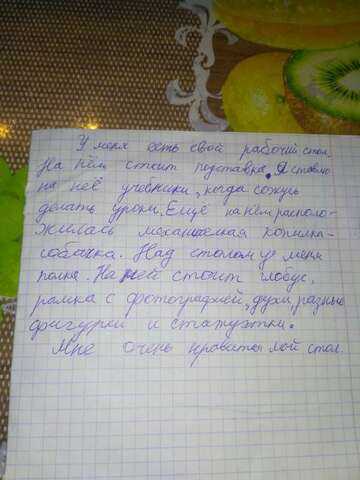 У меня есть свой рабочий стол.
На нём стоит подставка. Я ставлю
на неё учебники, когда сажусь
делать уроки. Ещё на нём располо-
жилась механическая копилка-
собачка. Над столом у меня
полка. На ней стоит глобус,
рамка с фотографией, духи, разные
фигурки и статуэтки.
Мне очень нравиться мой стол.